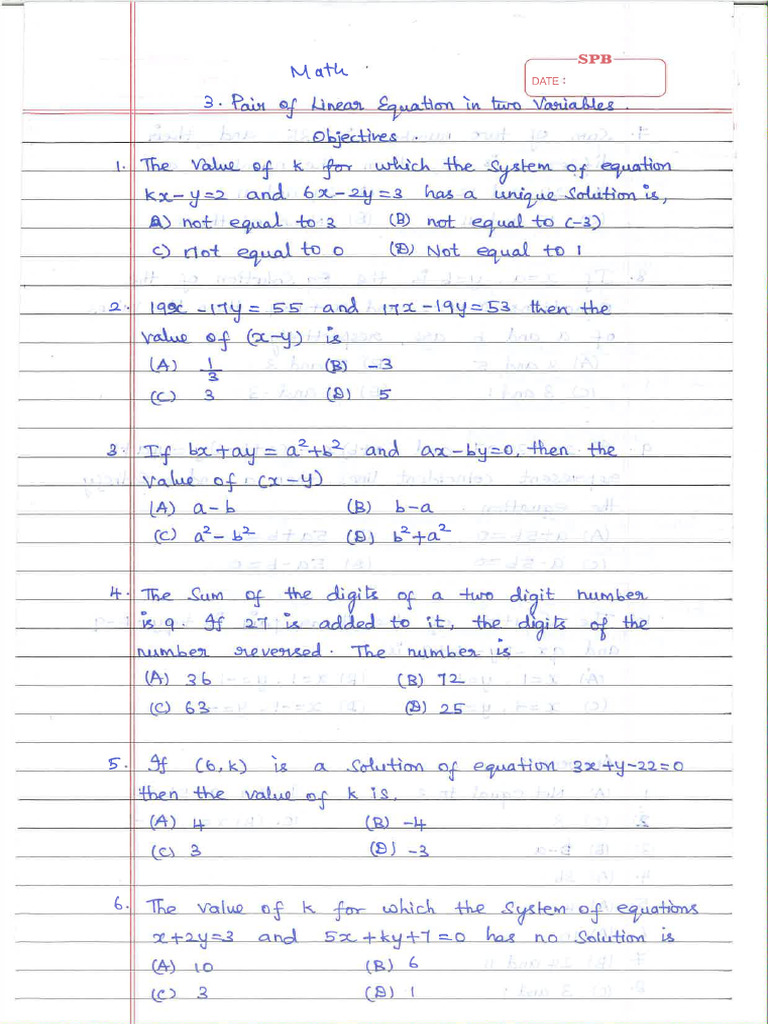 SPB
Math .
DATE :
3. Pair of Linear Equation in two Variables.
Objectives .
1. The Value of k for which the System of equation
kx-y=2 and 6x-2y=3 has a unique Solution is,
A) not equal to 3 (B) not equal to (-3)
C) not equal to 0 (D) Not equal to 1
2. 19x -17y = 55 and 17x-19y=53 then the
value of (x-y) is
(A) 1/3 (B) -3
(C) 3 (D) 5
3. If bx+ay = a²+b² and ax-by=0, then the
Value of (x-y)
(A) a-b (B) b-a
(C) a²-b² (D) b²+a²
4. The Sum of the digits of a two digit number
is 9. If 27 is added to it, the digits of the
number reversed. The number is
(A) 36 (B) 72
(C) 63 (D) 25
5. If (6,k) is a Solution of equation 3x+y-22=0
then the value of k is,
(A) 4 (B) -4
(C) 3 (D) -3
6. The value of k for which the System of equations
x+2y=3 and 5x+ky+7=0 has no Solution is
(A) 10 (B) 6
(C) 3 (D) 1